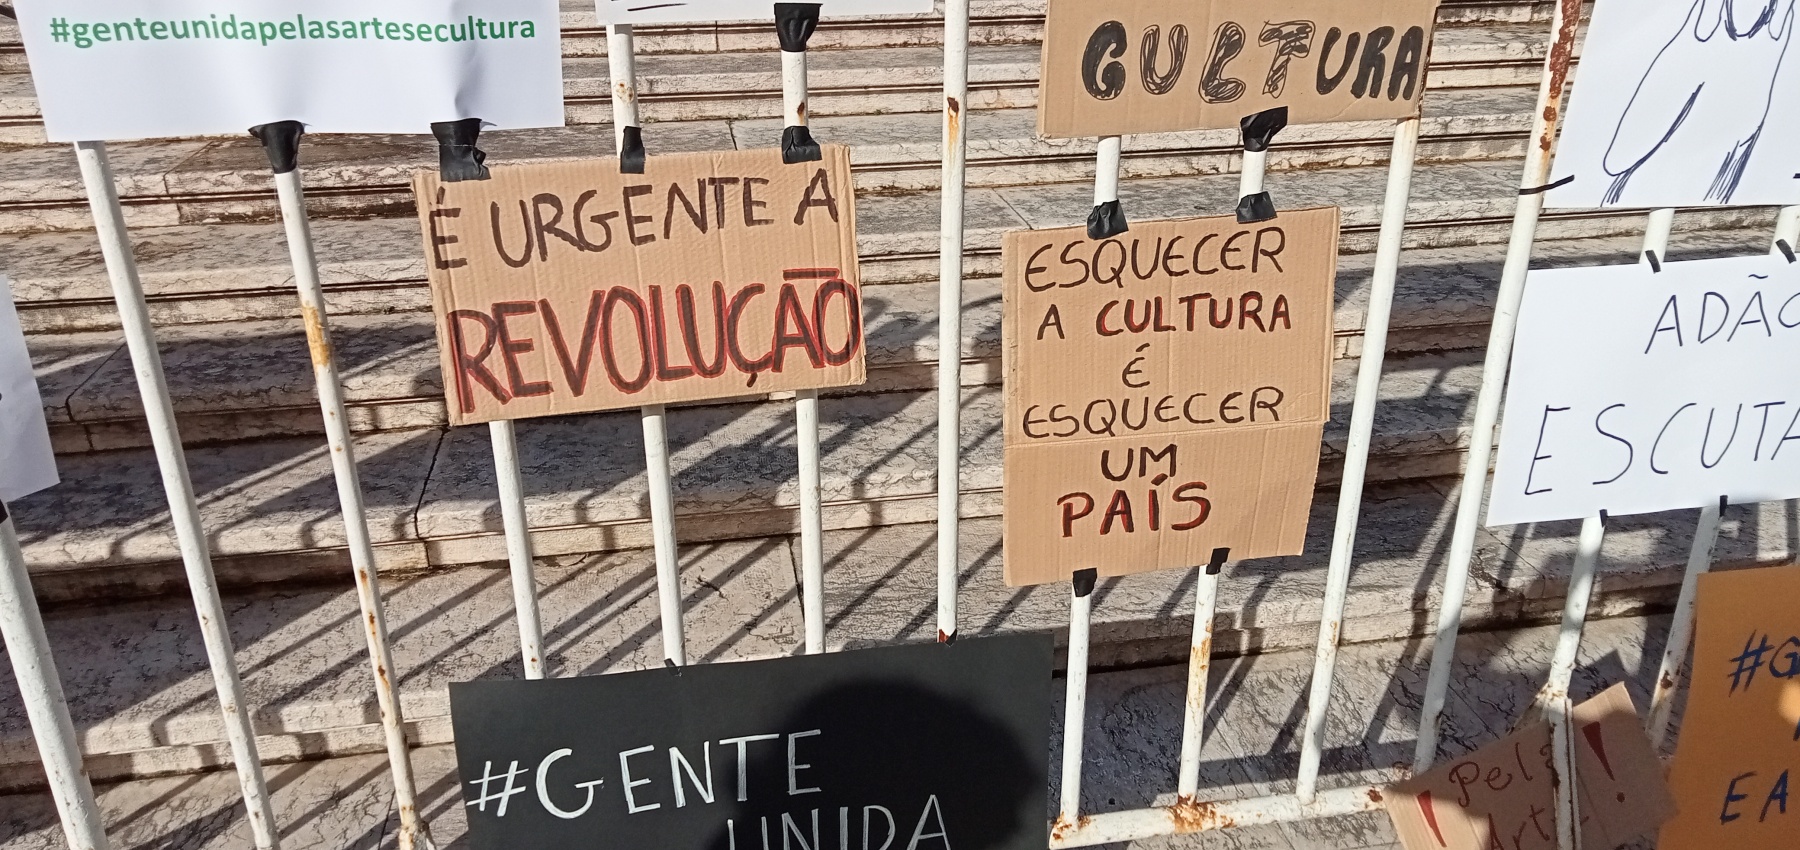 #genteunidapelasartesecultura
CULTURA
É URGENTE A
REVOLUÇÃO
ESQUECER
A CULTURA
É
ESQUECER
UM
PAÍS
ADÃO
ESCUTA
#GENTE
UNIDA
#G
E A
Pela
Arte
!